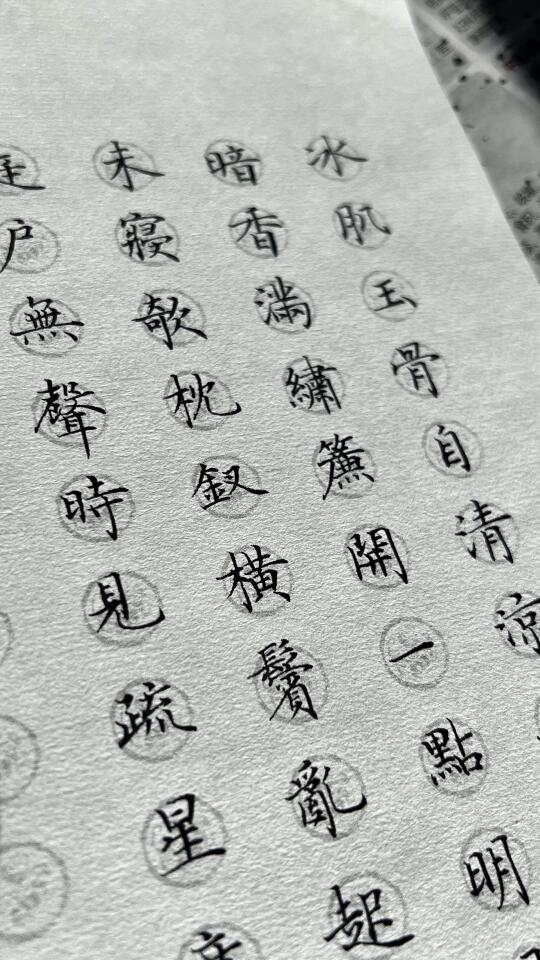 冰肌玉骨自清涼
暗香滿繡簾開一點明
未寢欹枕釵橫鬢亂起
庭戶無聲時見疏星